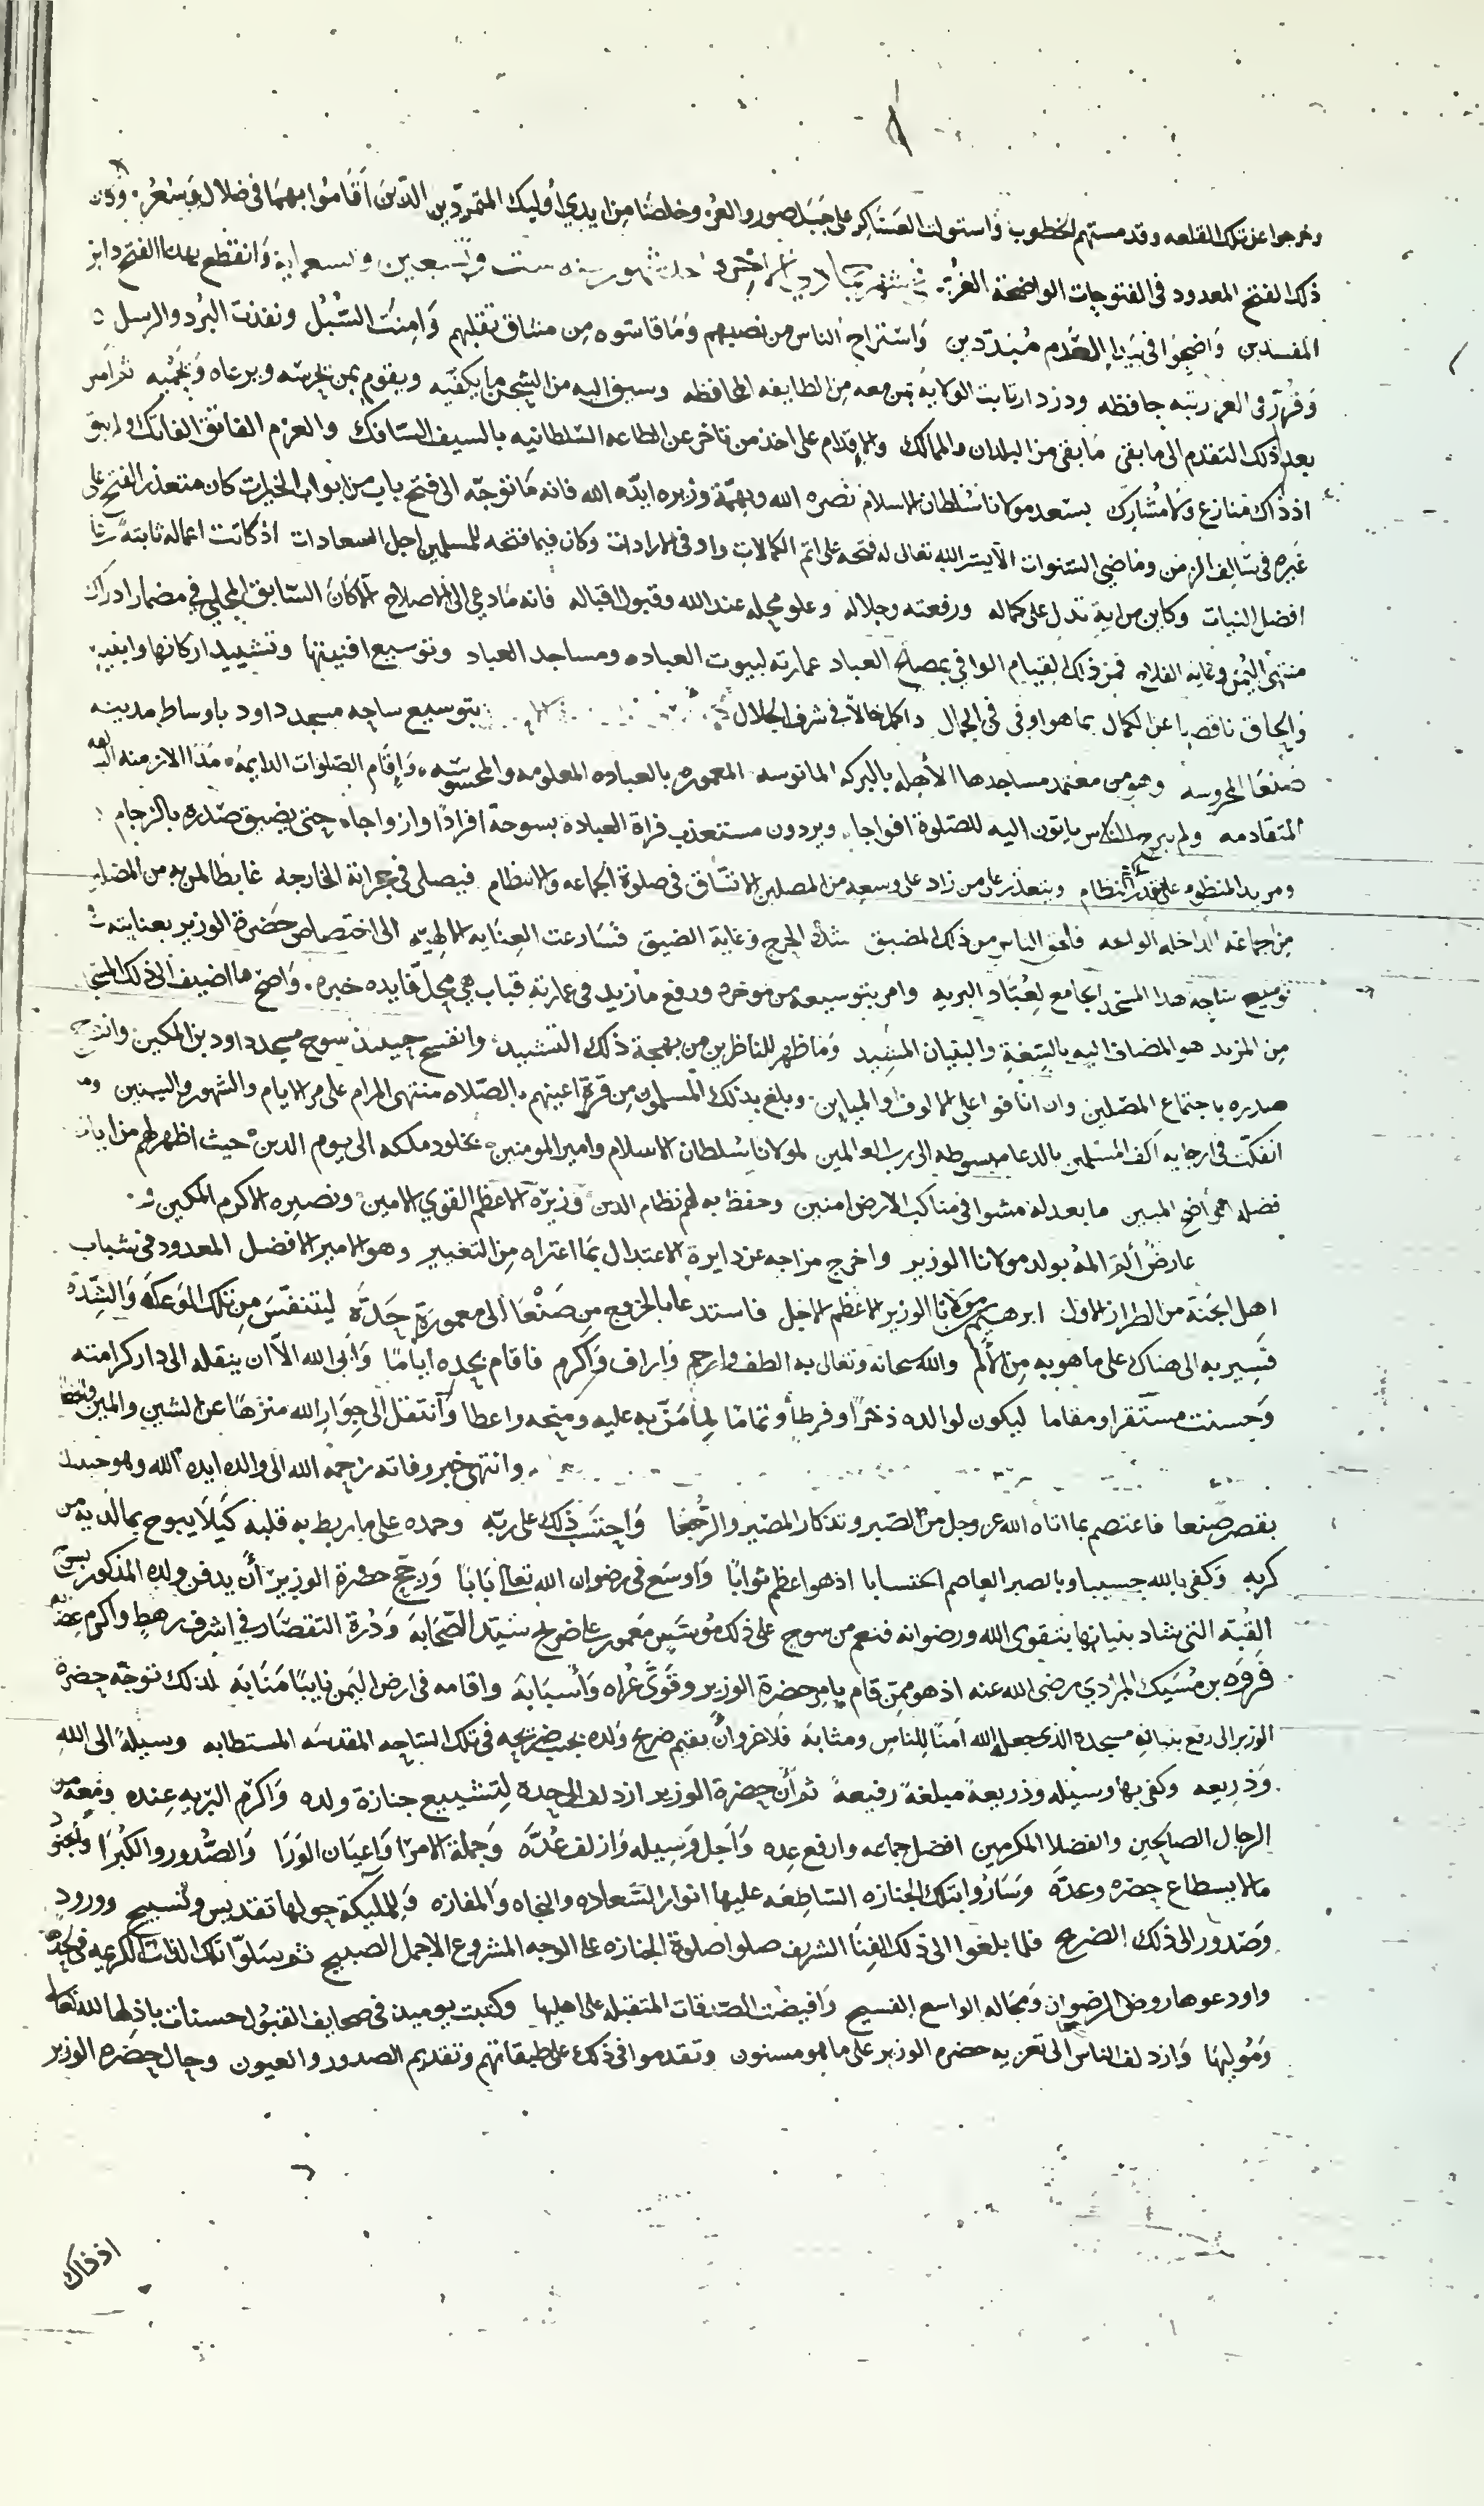 وخرجوا عن تلك القلعه وقد مستهم الخطوب واستولت العساكر على جبل صور والعر وخلصتا من ايدي اوليك المتمردين الذين اقاموا بهما في ضلال وسعر
ذلك الفتح المعدود في الفتوحات الواضحة الغرة في شهر جمادي الاخرى احد شهور سنه ست وتسعين وتسعماية وانقطع بهذا الفتح دابر
المفسدين واضحوا في بيدا العدم مبددين واستراح الناس من نصبهم وما قاسوه من مشاق تقلبهم وامنت السبل ونفذت البرد والرسل
وقرر في العر رتبه حافظه ودزدار ثابت الولاية بمن معه من الطايفه المحافظه وسيق اليه من الشحن ما يكفيه ويقوم بمن يحرسه ويرعاه ويحميه ثم امر
بعد ذلك التقدم الى ما بقي ما بقي من البلدان والممالك والاقدام على اخذ من تاخر عن الطاعه السلطانيه بالسيف السافك والعزم الفاتق الفاتك ولم يبق
اذ ذاك منازع ولا مشارك بسعد مولانا سلطان الاسلام نصره الله وبهمة وزيره ايده الله فانه ما توجه الى فتح باب من ابواب الخيرات كان متعذر الفتح على
غيره في سالف الزمن وماضي السنوات الا يسر الله تعالى له فتحه على اتم الكمالات واوفى الارادات وكان فيما فتحه للمسلمين اجل السعادات اذ كانت اعماله ثابتة
افضل النيات وكاين من اية تدل على كماله ورفعته وجلاله وعلو محله عند الله وقبول اقباله فانه ما دعي الى الاصلاح الا كان السابق المجلي في مضمار ادراك
منتهى اليمن وغاية الفلاح فمن ذلك القيام الوافي بمصالح العباد عمارته لبيوت العباده ومساجد العباد وتوسيع افنيتها وتشييد اركانها وابنيه
والحاق ناقصها عن الكمال بما هو اوفى في الجمال واكمل حالا في شرف الجلال بتوسيع ساحه مسجد داود باوساط مدينه
صنعا المحروسه وهو من معتمد مساجدها الاجله بالبركه المانوسه المعموره بالعباده المعلومه والمحسوسه واقام الصلوات الدايمه مدا الازمنه
المتقادمه ولم يبرح الناس ياتون اليه للصلوة افواجا ويردون مستعذب فراة العبادة بسوحه افرادا وازواجا حتى يضيق صدره بالزحام
ومريد المنظوم على قدر النظام ويتعذر على من زاد على وسعه من المصلين الاتساق في صلوة الجماعه والانتظام فيصلي في حجراته الخارجه غابطا لمن به من المصلين
من اجماعه الداخله الوالجه فلحق الناس من ذلك المضيق شدة الحرج وغاية الضيق فسارعت العناية الالهيه الى اختصاص حضرة الوزير بعنايته
توسيع ساحة هذا المسجد الجامع لعباد البريه وامر بتوسيعه من موخره ورفع ما زيد في عمارته قباب هي محل فايده خيره واضح ما اضيف الى ذلك المسجد
من المزيد هو المضاف اليه بالسعة والبنيان المشيد وما ظهر للناظرين من بهجة ذلك التشييد وانفسح حينئذ سوح مسجد داود بن المكين وانشرح
صدره باجتماع المصلين وان انافوا على الالوف والمياين وبلغ بذلك المسلمون من قرة اعينهم بالصلاه منتهى المرام على مر الايام والشهور والسنين وما
انفكت في ارجايه اكف المسلمين بالدعا مبسوطه الى رب العالمين لمولانا سلطان الاسلام وامير المومنين بخلود ملكه الى يوم الدين حيث اظهر لهم من ايات
فضله الواضح المبين ما بعدله مشوا في مناكب الارض امنين وحفظ به لهم نظام الدين وزيره الاعظم القوي الامين ونصيره الاكرم المكين
عارض الم الم بولد مولانا الوزير واخرج مزاجه عن دايرة الاعتدال بما اعتراه من التغيير وهو الامير الافضل المعدود في شباب
اهل الجنة من الطراز الاول ابرهيم بن مولانا الوزير الاعظم الاجل فاستدعا بالخروج من صنعا الى معمورة حدة ليتنفس من تلك الوعكة والشدة
فسير به الى هناك على ما هو به من الالم والله سبحانه وتعالى به الطف وارحم واراف واكرم فاقام بحده اياما وابى الله الا ان ينقله الى دار كرامته
وحسنت مستقرا ومقاما ليكون لوالده ذخرا وفرطا وتماما لما من به عليه ومنحه واعطا وانتقل الى جوار الله منزها عن الشين والمين والخطا
وانتهى خبر وفاته رحمه الله الى والده ايده الله وهو حينئذ
بقصر صنعا فاعتصم بما اتاه الله عز وجل من الصبر وتذكار المصير والرجعا واحتسب ذلك على ربه وحمده على ما ربط به قلبه كيلا يبوح بما لديه من
كربه وكفى بالله حسيبا وبالصبر العاصم احتسابا اذ هو اعظم ثوابا واوسع في رضوان الله تعالى بابا ورجح حضرة الوزير ان يدفن ولده المذكور بسوح
القبة التي شاد بنيانها بتقوى الله ورضوانه فنعم من سوح على ذلك موسس معمور على ضريح سيد الصحابة ودرة التقصار في اشرف رهط واكرم عصابه
فروه بن مسيك المرادي رضي الله عنه اذ هو ممن قام بامر حضرة الوزير وقوى عراه واسبابه واقامه في ارض اليمن نايبا منابه لذلك توجه حضرة
الوزير الى رفع بنيان مسجده الذي جعله الله امنا للناس ومثابة فلا غرو ان يقيم ضريح ولده بجنب ضريحه في تلك الساحه المقدسه المستطابه وسيلة الى الله
وذريعه وكفى بها وسيله وذريعة مبلغة رفيعة ثم ان حضرة الوزير ازدلف الى حدة لتشييع جنازة ولده واكرم البريه عنده ومعه من
الرجال الصالحين والفضلا المكرمين افضل جماعه وارفع عده واجل وسيله وازلف عدة وجملة الامرا واعيان الوزرا والصدور والكبرا والجنود
مالا يسطاع حصره وعدة وساروا بتلك الجنازه الساطعه عليها انوار السعاده والنجاه والمفازه وللمليكة حولها تقديس وتسبيح وورود
وصدور الى ذلك الضريح فلما بلغوا الى ذلك الفنا الشريف صلوا صلوة الجنازه على الوجه المشروع الاجمل الصبيح ثم سلوا تلك الذات الكريمه في لحدها
واودعوها روض الرضوان ومجاله الواسع الفسيح وافيضت الصدقات المتقبله على اهليها وكتبت يوميذ في صحايف القبول حسنات باذلها لله تعالى
وموليها وازدلف الناس الى تعزيه حضره الوزير على ما هو مسنون وتقدموا في ذلك على طبقاتهم وتقديم الصدور والعيون وحال حضره الوزير
اذ ذاك